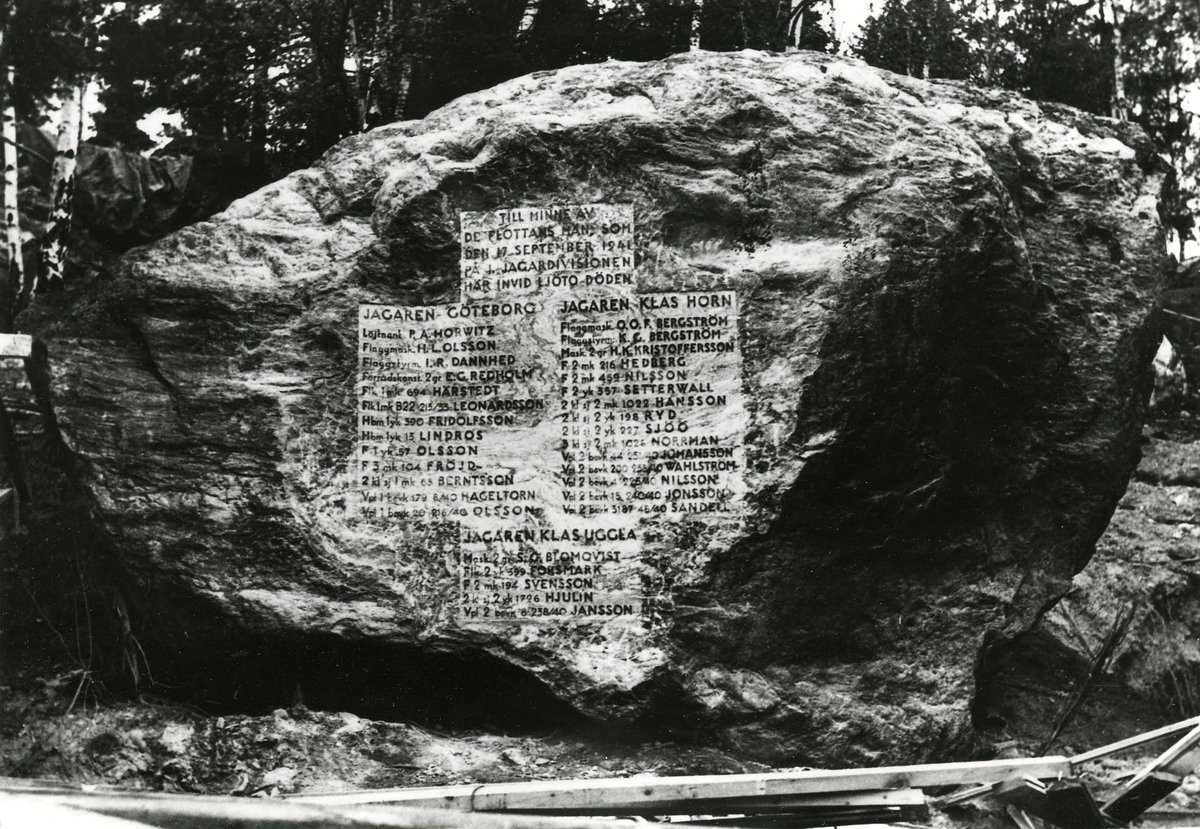 TILL MINNE AV
DE FLOTTANS MÄN SOM
DEN 17 SEPTEMBER 1941
PÅ 1. JAGARDIVISIONEN
HÄR INVID SJÖTO DÖDEN
JAGAREN GÖTEBORG
Löjtnant P. A. HORWITZ
Flaggmask. H. L. OLSSON
Flaggstyrm. I. R. DANNHED
Förrådskonst. 2 gr E. G. REDHOLM
Flk 1 mk 694 HÅRSTEDT
Flk 1 mk B22 215/35 LEONARDSSON
Hbm 1 yk 390 FRIDOLFSSON
Hbm 1 yk 15 LINDROS
F 1 yk 57 OLSSON
F 3 mk 104 FRÖJD
2 kl sj 1 mk 65 BERNTSSON
Vpl 1 bevk 179 8/40 HAGELTORN
Vpl 1 bevk 20 216/40 OLSSON
JAGAREN KLAS HORN
Flaggmask. O. O. F. BERGSTRÖM
Flaggstyrm. K. G. BERGSTRÖM
Mask 2 gr H. K. KRISTOFFERSSON
F 2 mk 216 HEDBERG
F 2 mk 459 NILSSON
F 2 yk 357 SETTERWALL
2 kl sj 2 mk 1022 HANSSON
2 kl sj 2 yk 198 RYD
2 kl sj 2 yk 227 SJÖÖ
3 kl sj 2 mk 1026 NORRMAN
Vpl 2 bevk 44 251/40 JOHANSSON
Vpl 2 bevk 200 255/40 WAHLSTRÖM
Vpl 2 bevk 41 225/40 NILSSON
Vpl 2 bevk 15 240/40 JONSSON
Vpl 2 bevk 3187 45/40 SANDELL
JAGAREN KLAS UGGLA
Mask 2 gr S. O. BLOMQVIST
Flk 2 yk 399 FORSMARK
F 2 mk 194 SVENSSON
2 kl sj 2 yk 1726 HJULIN
Vpl 2 bevk 8/238/40 JANSSON